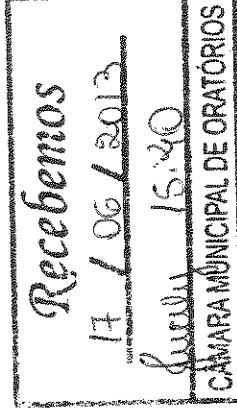 Recebemos
17 / 06 / 2013
15:40
CÂMARA MUNICIPAL DE ORATÓRIOS